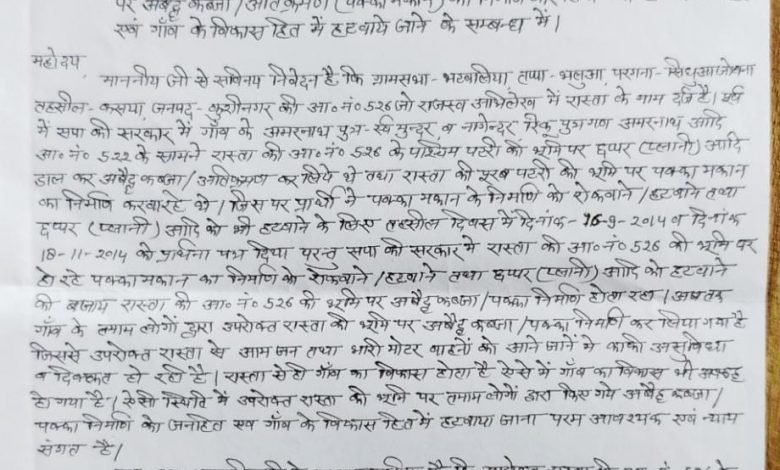 पर अबैद्व कब्जा/अतिक्रमण (पक्का मकान)
एवं गाँव के विकास हित में हटवाये जाने के सम्बन्ध में।
महोदय,
माननीय जी से सविनय निवेदन है कि ग्रामसभा- भटवलिया तप्पा- भलुआ, परगना- सिधुआ जोबना
तहसील- कसया, जनपद- कुशीनगर की आ०नं० 526 जो राजस्व अभिलेख में रास्ता के नाम दर्ज है। पूर्व
में सपा की सरकार में गाँव के अमरनाथ पुत्र- स्व० मुन्दर व नागेन्दर, रिंकू पुत्रगण अमरनाथ आदि
आ० नं० 522 के सामने रास्ता की आ०नं० 526 के पश्चिम पटरी की भूमि पर छप्पर (प्लानी) आदि
डाल कर अबैद्व कब्जा/अतिक्रमण कर लिये थे तथा रास्ता की पूरब पटरी की भूमि पर पक्का मकान
का निर्माण करवा रहे थे। जिस पर प्रार्थी ने पक्का मकान के निर्माण को रोकवाने/हटवाने तथा
छप्पर (प्लानी) आदि को भी हटवाने के लिए तहसील दिवस में दिनांक- 16-9-2014 व दिनांक
18-11-2014 को प्रार्थना पत्र दिया परन्तु सपा की सरकार में रास्ता की आ०नं० 526 की भूमि पर
हो रहे पक्का मकान का निर्माण को रोकवाने/हटवाने तथा छप्पर (प्लानी) आदि को हटवाने
की बजाय रास्ता की आ० नं० 526 की भूमि पर अबैद्व कब्जा/पक्का निर्माण होता रहा। अबतक
गाँव के तमाम लोगों द्वारा उपरोक्त रास्ता की भूमि पर अबैद्व कब्जा/पक्का निर्माण कर लिया गया है
जिससे उपरोक्त रास्ता से आम जन तथा भारी मोटर वाहनों को आने जाने में काफी असुविधा
व दिक्कत हो रही है। रास्ता से ही गाँव का विकास होता है ऐसे में गाँव का विकास भी अवरुद्ध
हो गया है। ऐसी स्थिति में उपरोक्त रास्ता की भूमि पर तमाम लोगों द्वारा किए गये अबैद्व कब्जा/
पक्का निर्माण को जनहित एवं गाँव के विकास हित में हटवाया जाना परम आवश्यक एवं न्याय
संगत है।